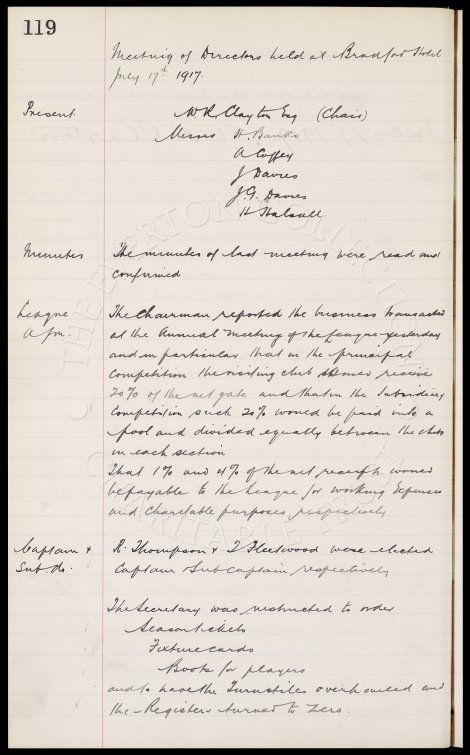 119
Meeting of Directors held at Bradford Hotel
July 17th 1917.
Present W R Clayton Esq (Chair)
Messrs H. Banks
A Coffey
J Davies
J. G. Davies
H Halsall
Minutes The minutes of last meeting were read and
confirmed
League The Chairman reported the business transacted
A.G.M. at the Annual Meeting of the League yesterday
and in particular that in the principal
Competition the visiting club should receive
20% of the net gate and that in the Subsidiary
Competition such 20% would be paid into a
pool and divided equally between the clubs
in each section
That 1% and 4% of the net receipts would
be payable to the League for working expenses
and charitable purposes, respectively
Captain & R. Thompson & T Fleetwood were elected
Sub do. Captain & Sub Captain, respectively
The Secretary was instructed to order
Season tickets
Fixture cards
Boots for players
and to have the Turnstiles overhauled and
the Registers turned to zero.
THE EVERTON COLLECTION
CHARITABLE TRUST